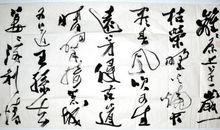 離離原上草一
枯榮野火燒
春風吹又生
遠芳侵古道
晴翠接荒城
又送王孫去
萋萋滿別情